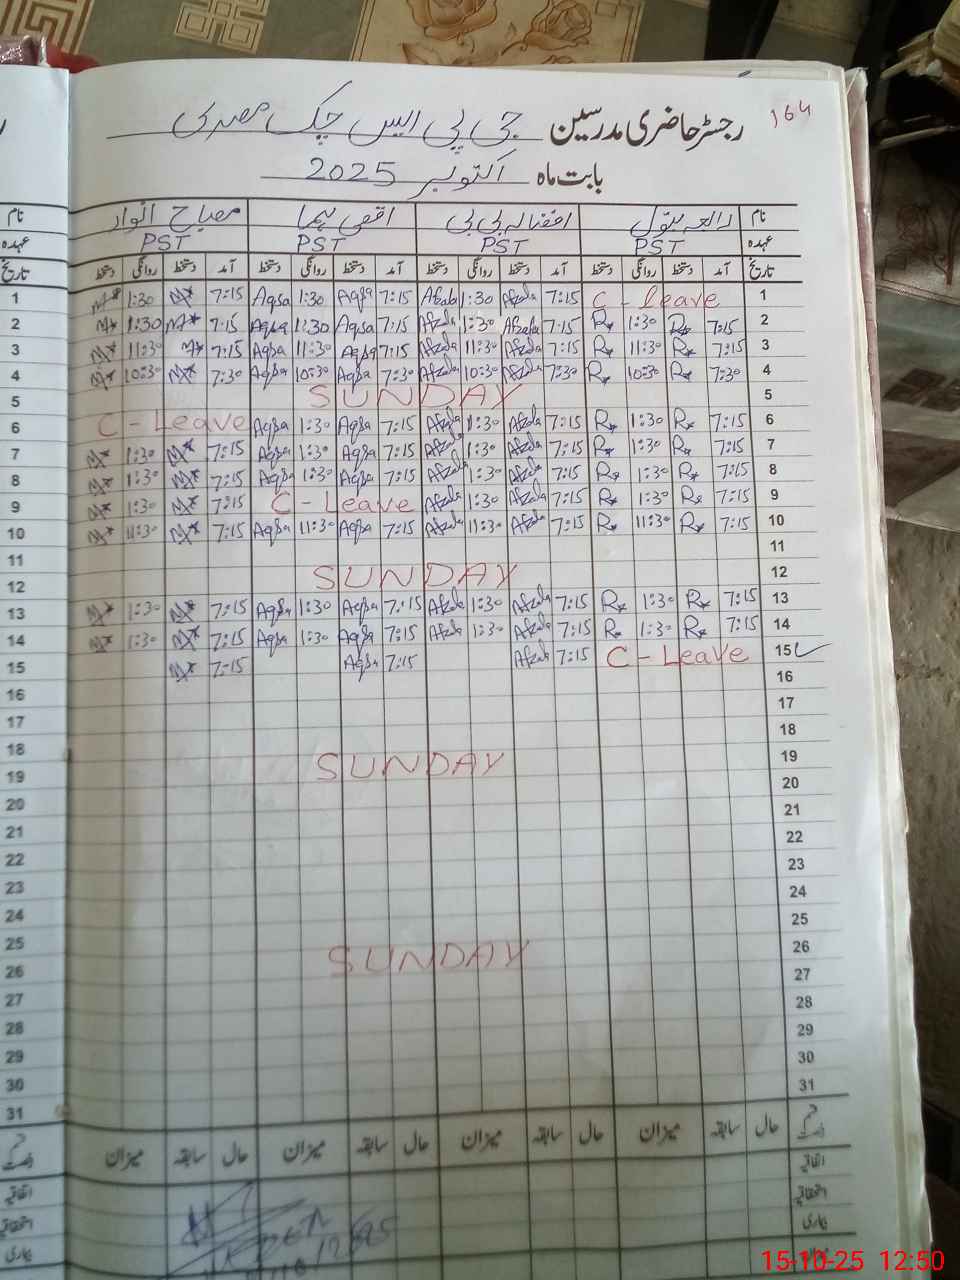 164
رجسٹر حاضری مدرسین جی پی ایس چک مصدی
بابت ماہ اکتوبر 2025
نام رابعہ بتول افضالہ بی بی اقصیٰ ہما مصباح انوار نام
عہدہ PST PST PST PST عہدہ
تاریخ آمد دستخط روانگی دستخط آمد دستخط روانگی دستخط آمد دستخط روانگی دستخط آمد دستخط روانگی دستخط تاریخ
1 C-leave 7:15 Afzala 1:30 Afzala 7:15 Aqsa 1:30 Aqsa 7:15 M* 1:30 M* 1
2 7:15 R* 1:30 R* 7:15 Afzala 1:30 Afzala 7:15 Aqsa 1:30 Aqsa 7:15 M* 1:30 M* 2
3 7:15 R* 11:30 R* 7:15 Afzala 11:30 Afzala 7:15 Aqsa 11:30 Aqsa 7:15 M* 11:30 M* 3
4 7:30 R* 10:30 R* 7:30 Afzala 10:30 Afzala 7:30 Aqsa 10:30 Aqsa 7:30 M* 10:30 M* 4
5 SUNDAY 5
6 7:15 R* 1:30 R* 7:15 Afzala 1:30 Afzala 7:15 Aqsa 1:30 Aqsa C-Leave 6
7 7:15 R* 1:30 R* 7:15 Afzala 1:30 Afzala 7:15 Aqsa 1:30 Aqsa 7:15 M* 1:30 M* 7
8 7:15 R* 1:30 R* 7:15 Afzala 1:30 Afzala 7:15 Aqsa 1:30 Aqsa 7:15 M* 1:30 M* 8
9 7:15 R* 1:30 R* 7:15 Afzala 1:30 Afzala C-Leave 7:15 M* 1:30 M* 9
10 7:15 R* 11:30 R* 7:15 Afzala 11:30 Afzala 7:15 Aqsa 11:30 Aqsa 7:15 M* 11:30 M* 10
11 11
12 SUNDAY 12
13 7:15 R* 1:30 R* 7:15 Afzala 1:30 Afzala 7:15 Aqsa 1:30 Aqsa 7:15 M* 1:30 M* 13
14 7:15 R* 1:30 R* 7:15 Afzala 1:30 Afzala 7:15 Aqsa 1:30 Aqsa 7:15 M* 1:30 M* 14
15 C-Leave 7:15 Afzala 7:15 Aqsa 7:15 M* 15
16 16
17 17
18 18
19 SUNDAY 19
20 20
21 21
22 22
23 23
24 24
25 25
26 SUNDAY 26
27 27
28 28
29 29
30 30
31 31
قسم رخصت حال سابقہ میزان حال سابقہ میزان حال سابقہ میزان حال سابقہ میزان قسم رخصت
اتفاقیہ اتفاقیہ
استحقاقیہ استحقاقیہ
بیماری بیماری
15-10-25 12:50